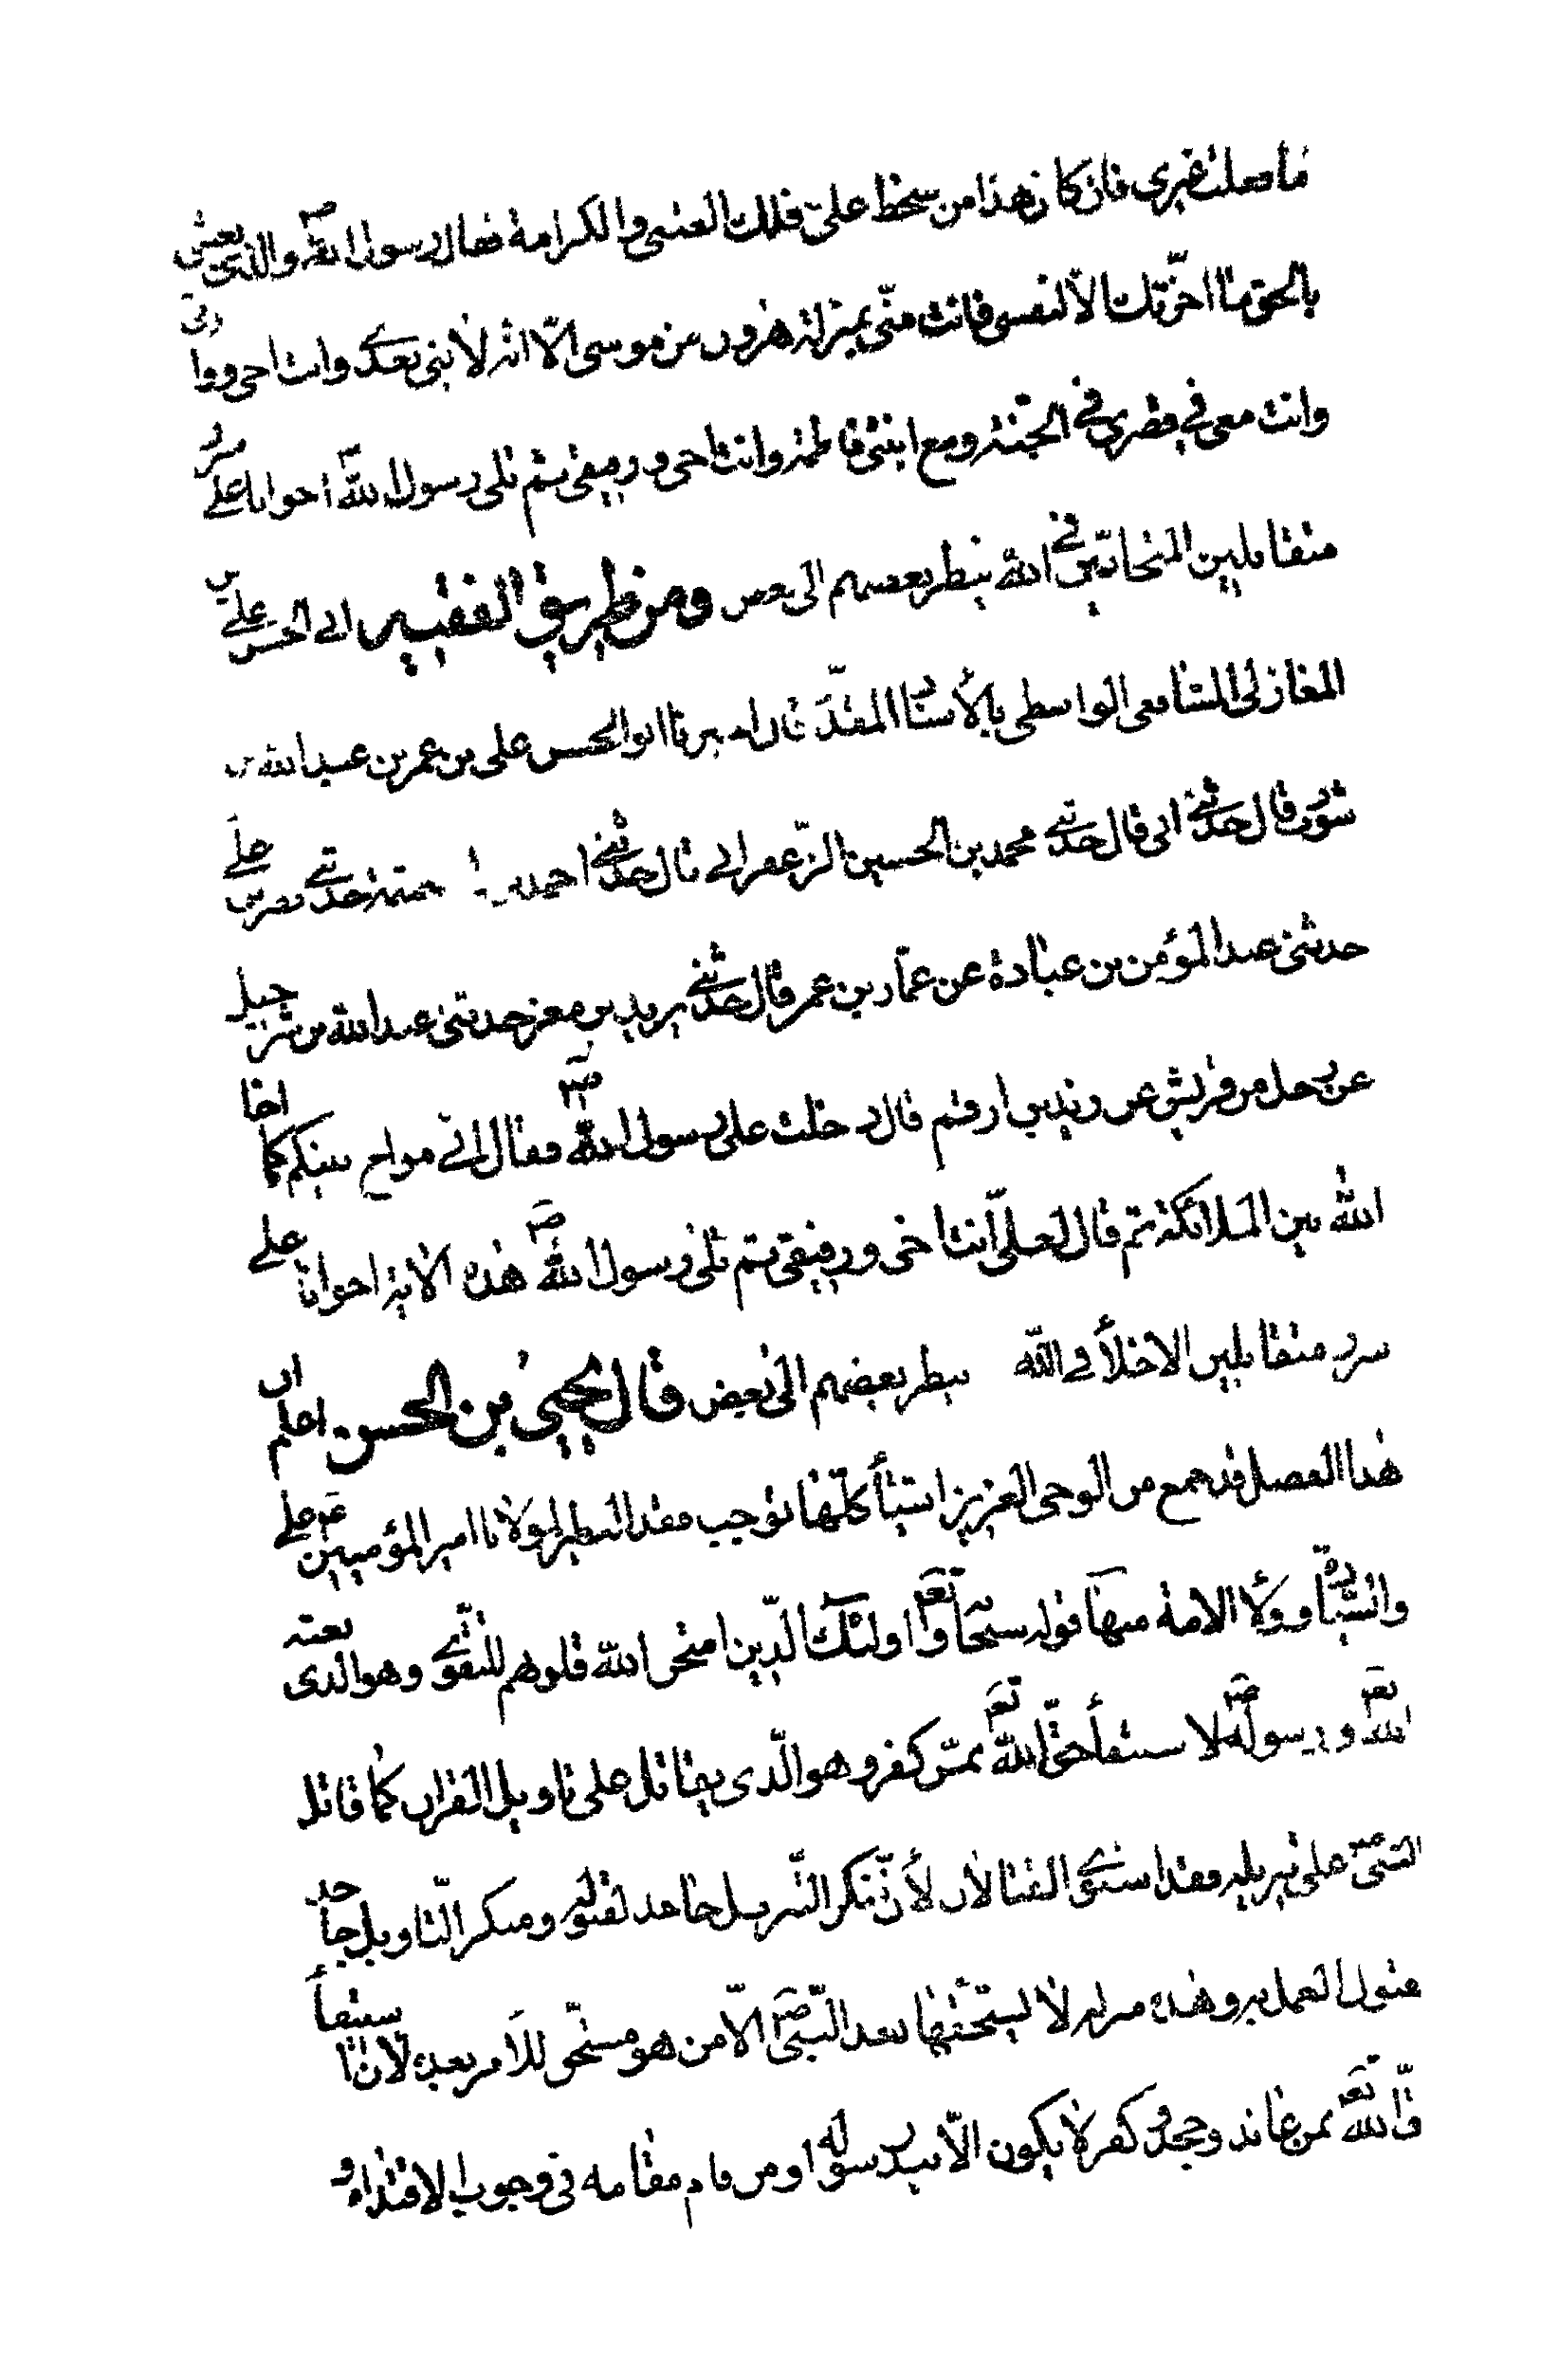 ما فعلت غيري فان كان هذا من سخط علىّ فلك العتبى والكرامة فقال رسول الله ص والذى بعثنى
بالحق ما اخّرتك الا لنفسى فانت منّى بمنزلة هرون من موسى الّا انّه لا نبى بعدى وانت اخى ووارثى
وانت معى في قصرى في الجنّة ومع ابنتى فاطمة وانت اخى ورفيقى ثم تلى رسول الله ص اخوانا على سرر
متقابلين المتحابّين في الله ينظر بعضهم الى بعض ومن طريق الفقيه ابى الحسن على بن
المغازلى الشافعى الواسطى بالأسناد المقدّم قال اخبرنا ابو الحسن على بن عمر بن عبد الله بن
شوذب قال حدثنى ابى قال حدثنى محمد بن الحسين الزّعفرانى قال حدثنى احمد بن ابى خيثمة حدثنى نصر بن على
حدثنى عبد المؤمن بن عبادة عن عمّار بن عمر قال حدثنى يزيد بن معن حدثنى عبد الله بن شرحبيل
عن رجل من قريش عن زيد بن ارقم قال دخلت على رسول الله ص فقال انى مواخ بينكم كما اخا
الله بين الملائكة ثم قال لعلىّ انت اخى ورفيقى ثم تلى رسول الله ص هذه الاية اخوانا على
سرر متقابلين الاخلّاء في الله ينظر بعضهم الى بعض قال يحيى بن الحسن اعلم ان
هذا الفصل قد جمع من الوحى العزيز اشياء كلّها توجب فقد النظير لمولانا امير المؤمنين على ع
والسّيادة وولاء الامة منها قوله سبحانه وتعالى اولئك الّذين امتحن الله قلوبهم للتقوى وهو الذى بعثه
الله تعر ورسوله ص لاستيفاء حقّ الله تعر ممّن كفر وهو الّذى يقاتل على تاويل القران كما قاتل
النبىّ ص على تنزيله فقد استوى القتالان لأنّ منكر التّنزيل جاحد لقبوله ومنكر التّاويل جاحد
قبول العمل به وهذه منزلة لا يستحقها بعد النّبىّ ص الّا من هو مستحق للأمر بعده لانّ استيفاء
حقّ الله تعر ممن عاند وجحد وكفر لا يكون الّا بيد رسوله او من قام مقامه فى وجوب الاقتداء و